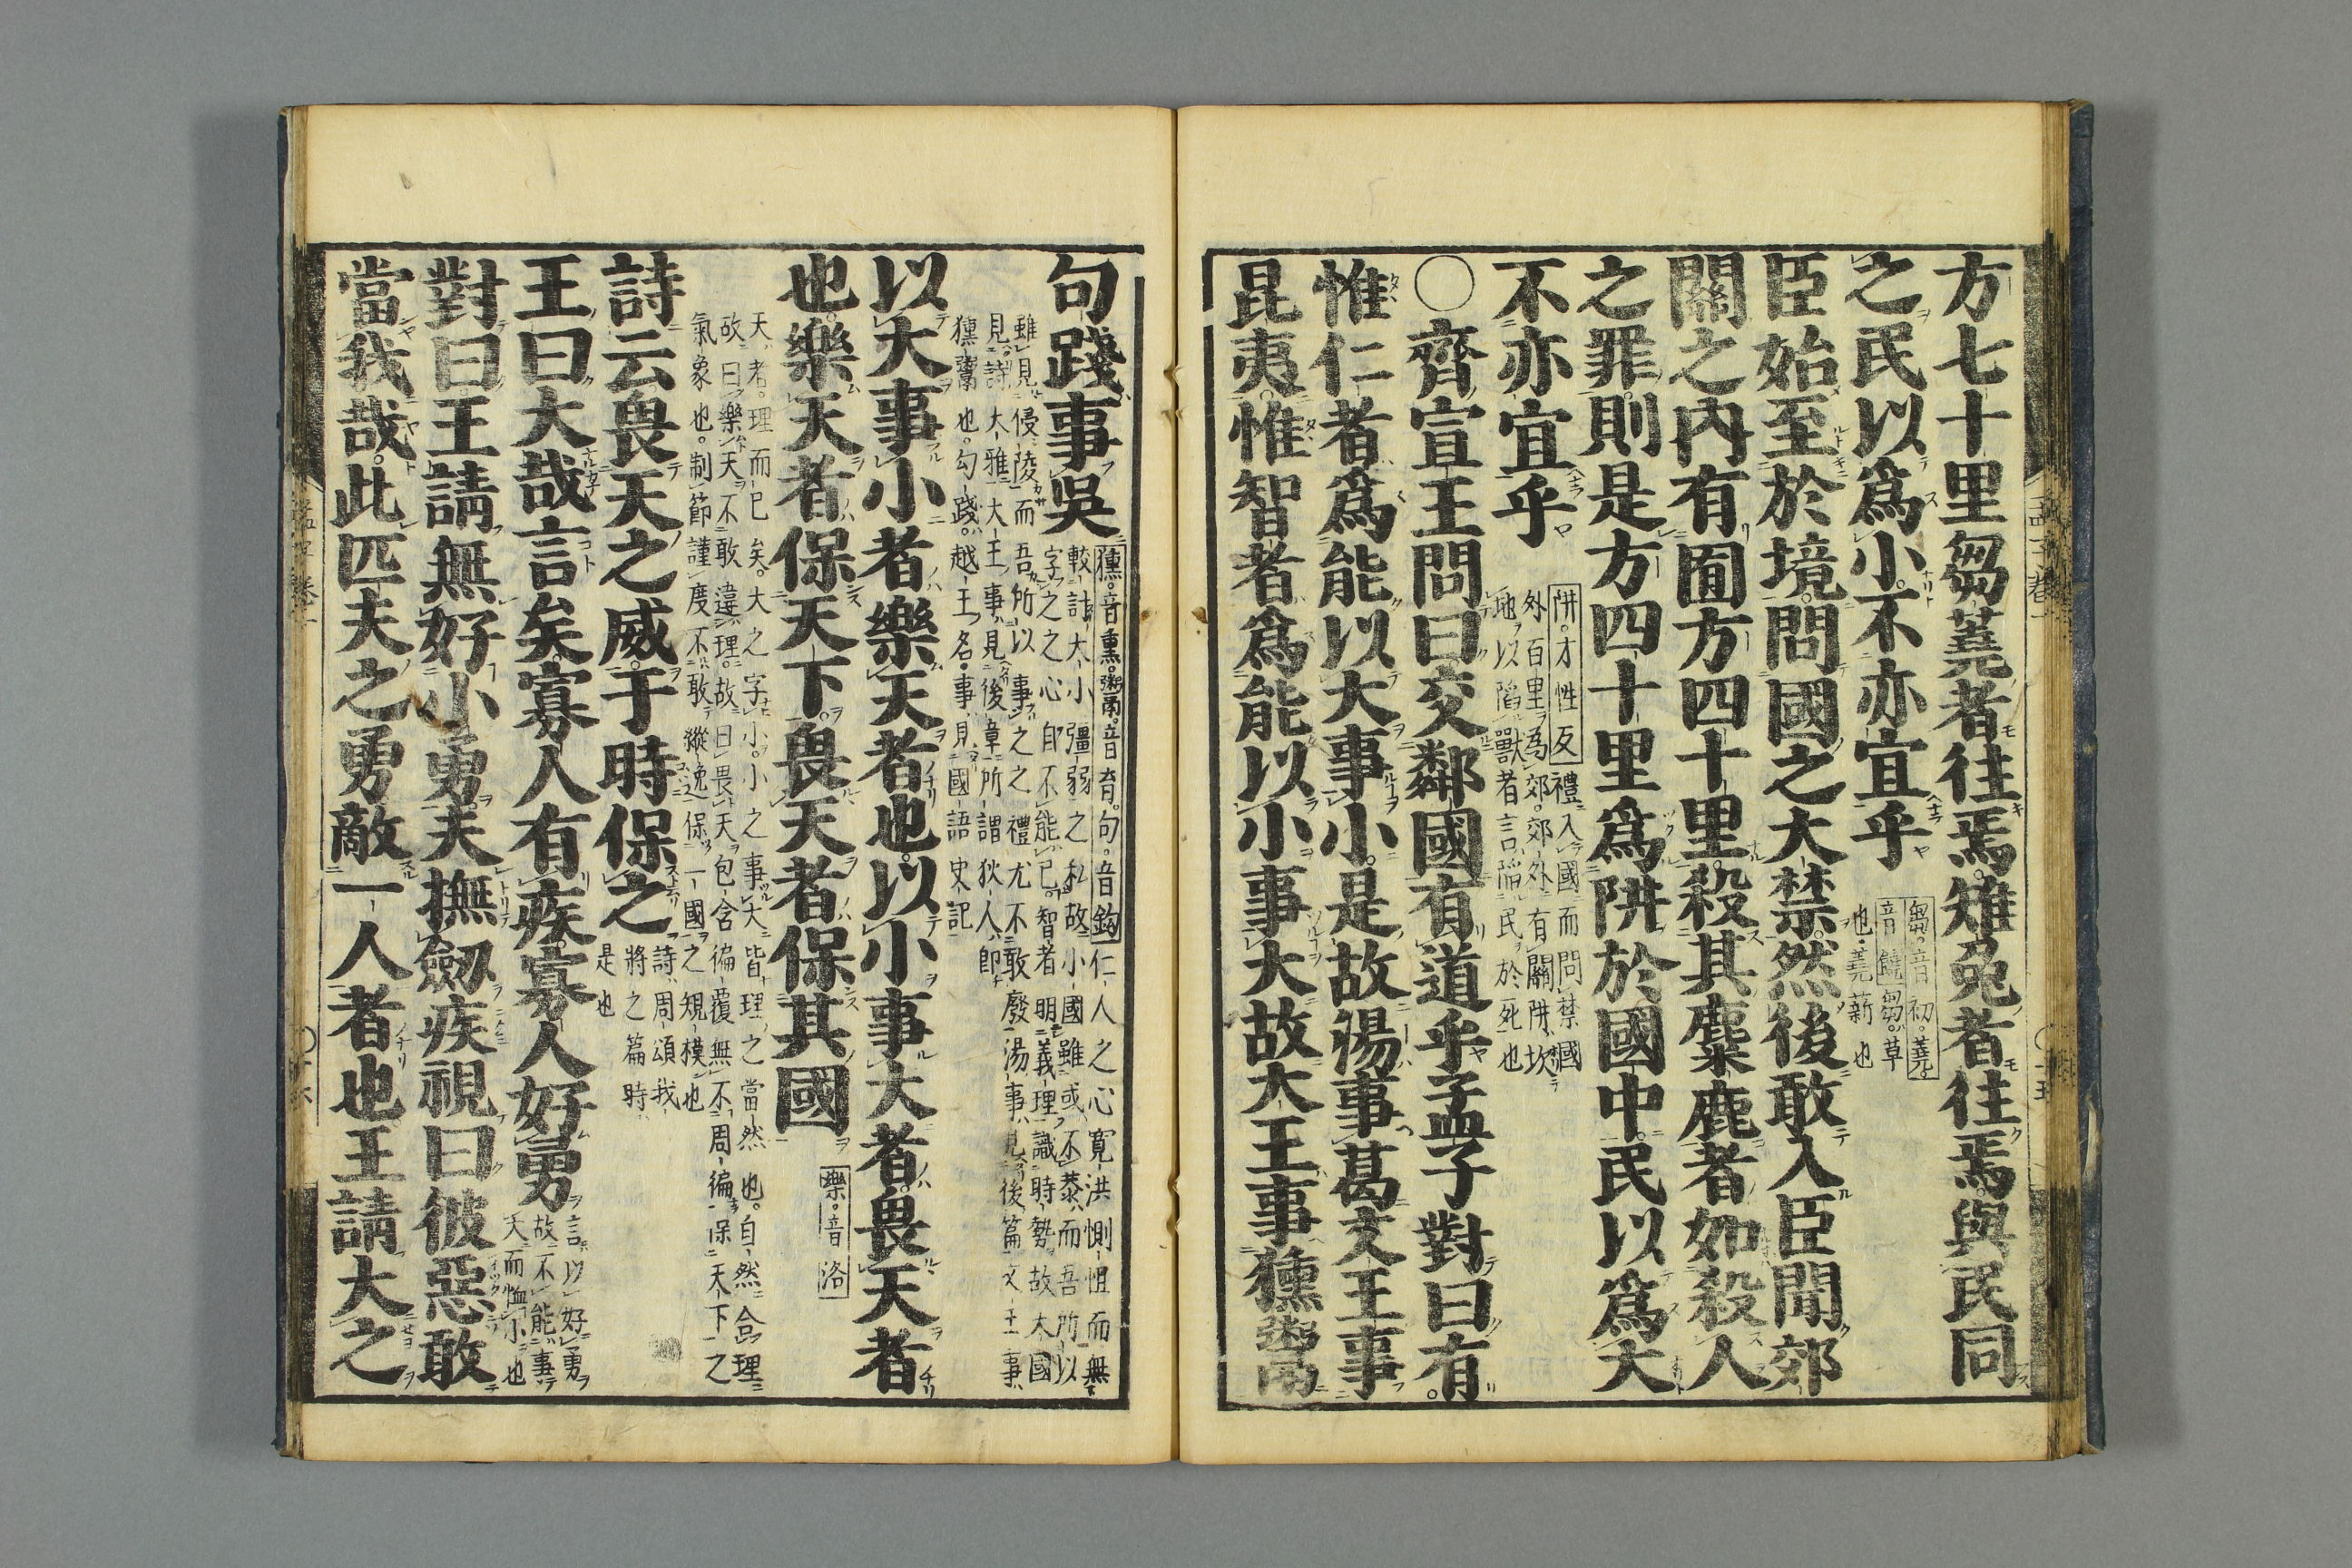 方七十里芻蕘者往焉雉兔者往焉與民同
之民以爲小不亦宜乎
芻音初蕘
音饒芻草
也蕘薪也
臣始至於境問國之大禁然後敢入臣聞郊
關之內有囿方四十里殺其麋鹿者如殺人
之罪則是方四十里爲阱於國中民以爲大
不亦宜乎
阱才性反禮入國而問禁國
外百里爲郊郊外有關阱坎
地以陷獸者言陷民於死也
○齊宣王問曰交鄰國有道乎孟子對曰有
惟仁者爲能以大事小是故湯事葛文王事
昆夷惟智者爲能以小事大故大王事獯鬻
句踐事吳
獯音熏鬻音育句音鉤仁人之心寬洪惻怛而無
較計大小彊弱之私故小國雖或不恭而吾所以
字之之心自不能已智者明義理識時勢故大國
雖見侵陵而吾所以事之之禮尤不敢廢湯事見後篇文王事
見詩大雅大王事見後章所謂狄人卽
獯鬻也勾踐越王名事見國語史記
以大事小者樂天者也以小事大者畏天者
也樂天者保天下畏天者保其國
樂音洛
天者理而已矣大之字小小之事大皆理之當然也自然合理
故曰樂天不敢違理故曰畏天包含徧覆無不周徧保天下之
氣象也制節謹度不敢縱逸保一國之規模也
詩云畏天之威于時保之
詩周頌我
將之篇時
是也
王曰大哉言矣寡人有疾寡人好勇
言以好勇
故不能事
大而恤小也
對曰王請無好小勇夫撫劒疾視曰彼惡敢
當我哉此匹夫之勇敵一人者也王請大之